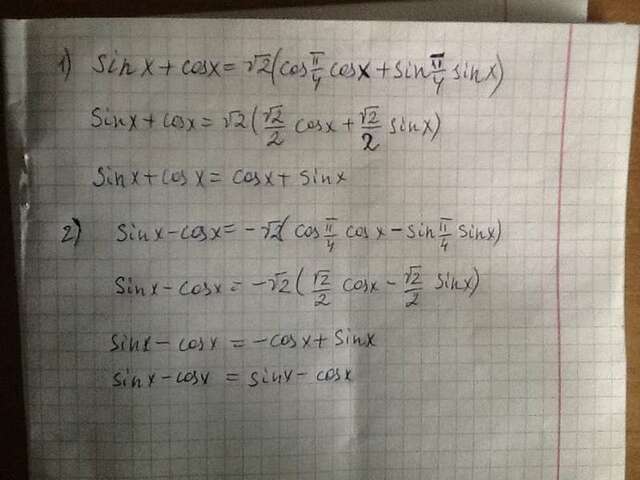 1) sin x + cosx = √2(cos π/4 cosx + sin π/4 sinx)
sinx + cosx = √2(√2/2 cosx + √2/2 sinx)
sinx + cosx = cosx + sinx
2) sinx - cosx = -√2(cos π/4 cosx - sin π/4 sinx)
sinx - cosx = -√2(√2/2 cosx - √2/2 sinx)
sinx - cosx = -cosx + sinx
sinx - cosx = sinx - cosx